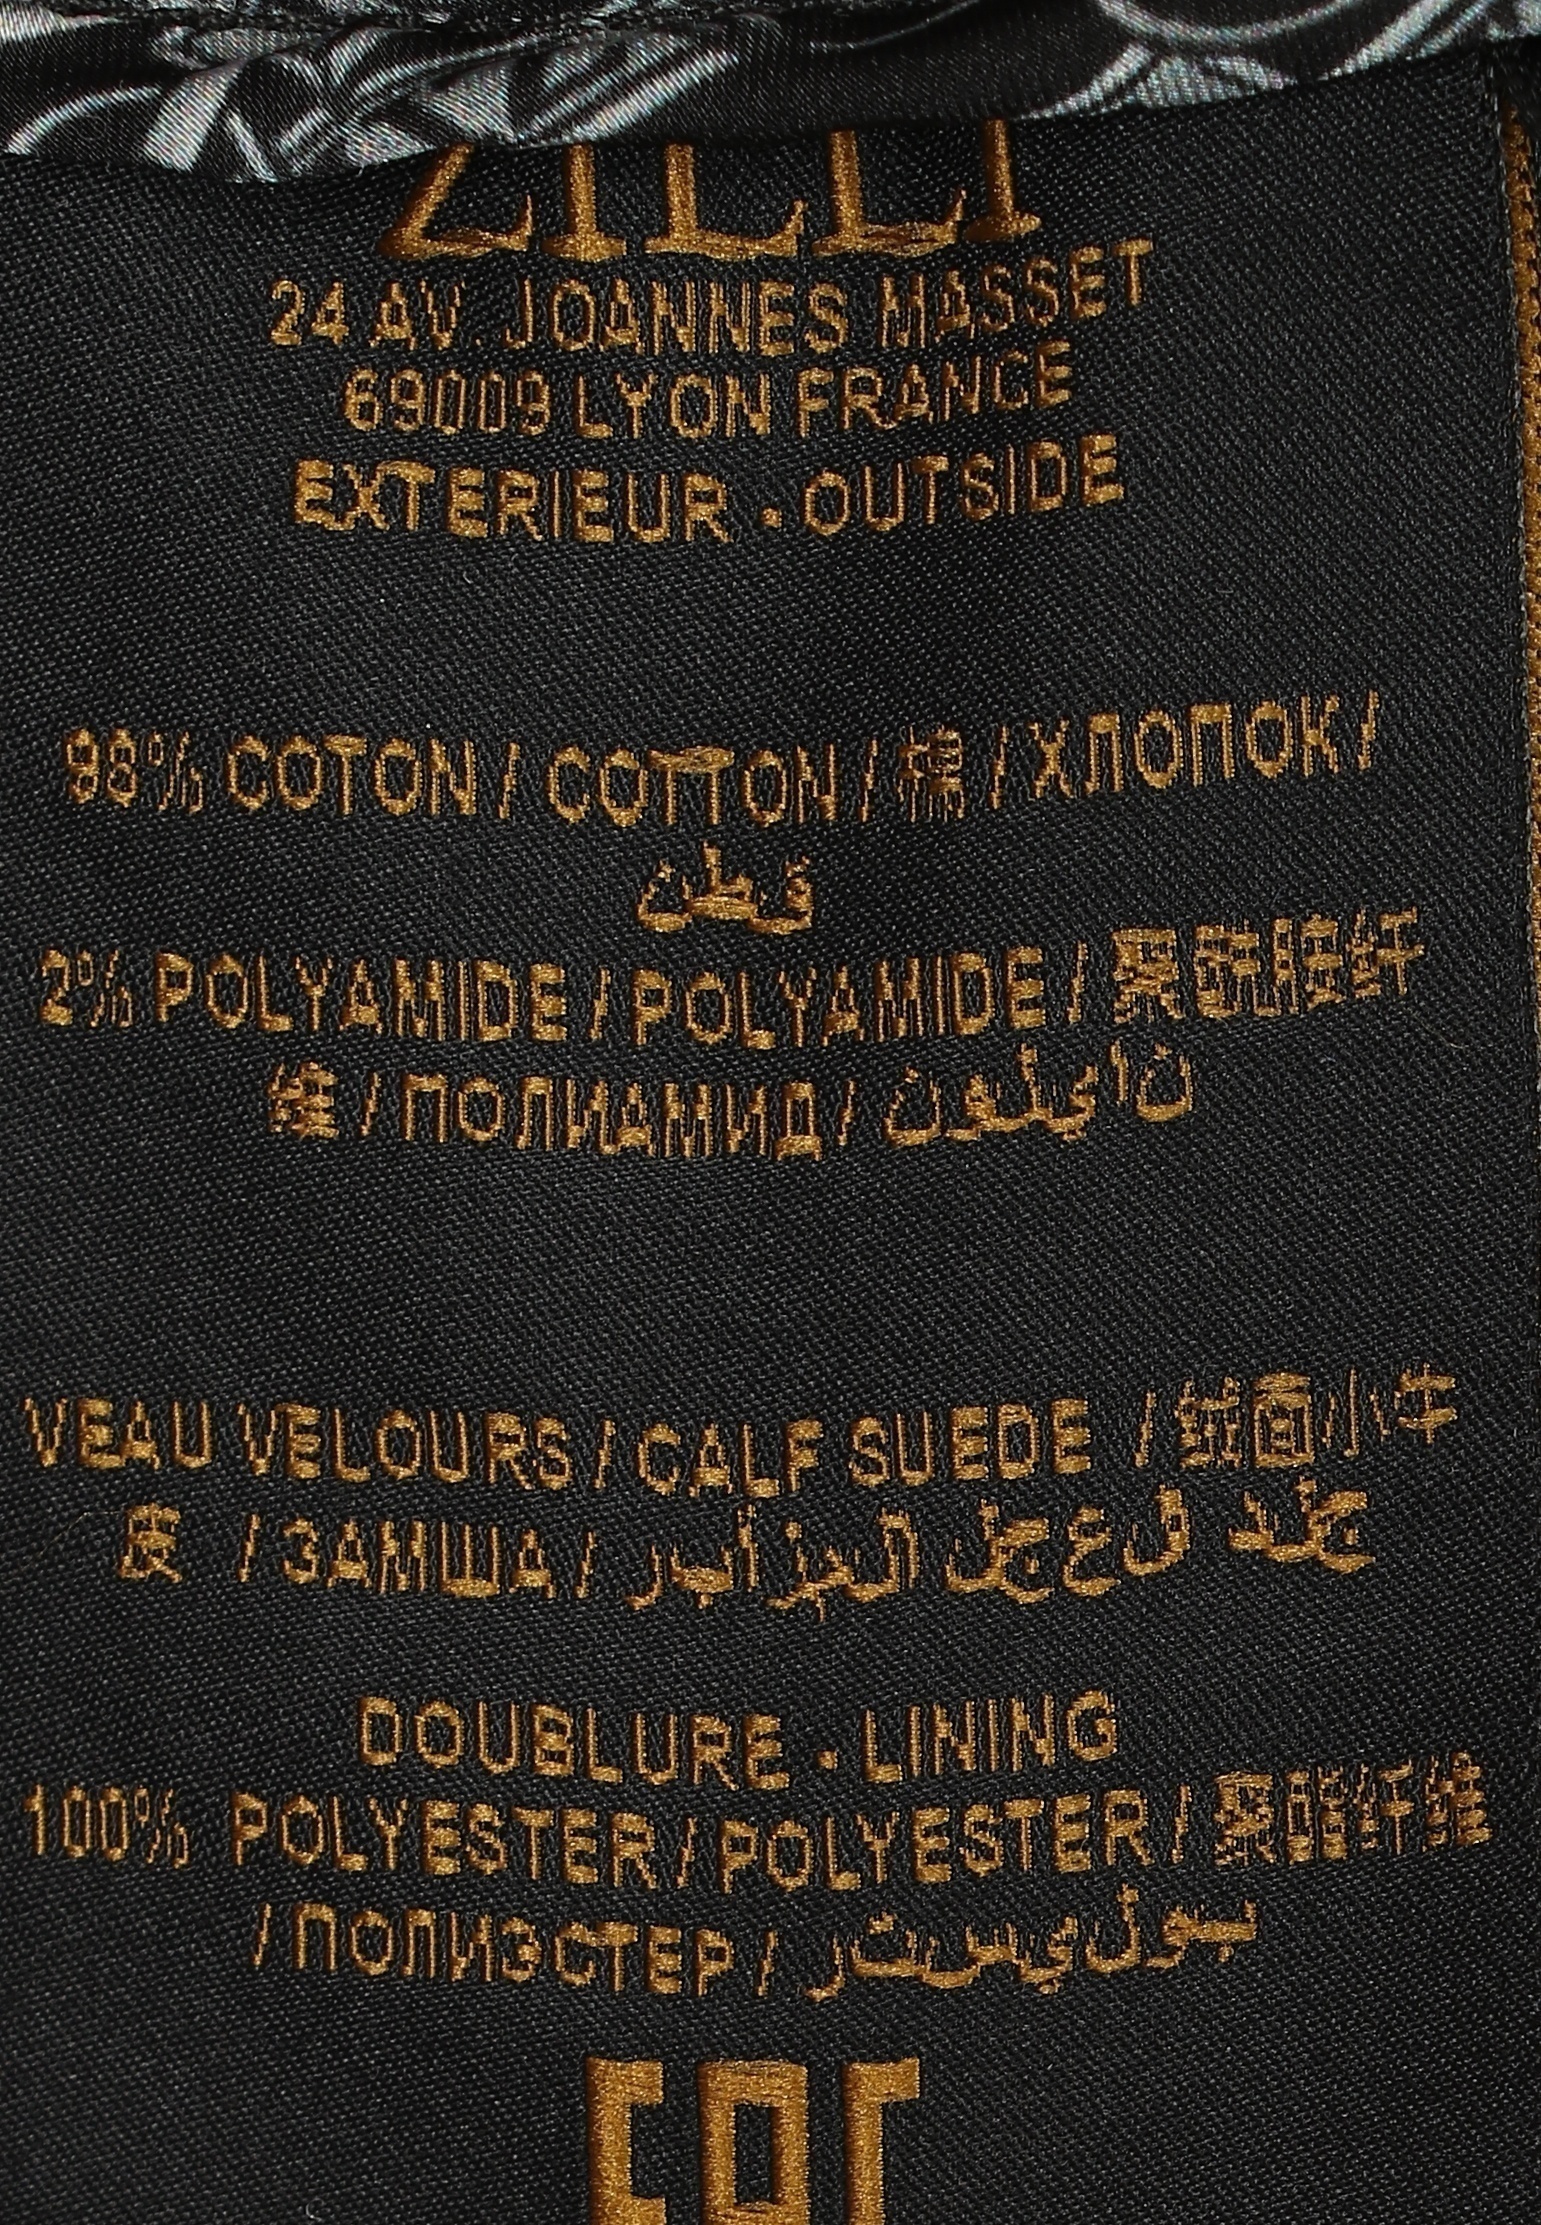 ZILLI
24 AV. JOANNES MASSET
69009 LYON FRANCE
EXTERIEUR . OUTSIDE
98% COTON / COTTON / 棉 / ХЛОПОК /
قطن
2% POLYAMIDE / POLYAMIDE / 聚酰胺纤
维 / ПОЛИАМИД / نايلون
VEAU VELOURS / CALF SUEDE / 绒面小牛
皮 / ЗАМША /
DOUBLURE . LINING
100% POLYESTER / POLYESTER / 聚酯纤维
/ ПОЛИЭСТЕР / بوليستر